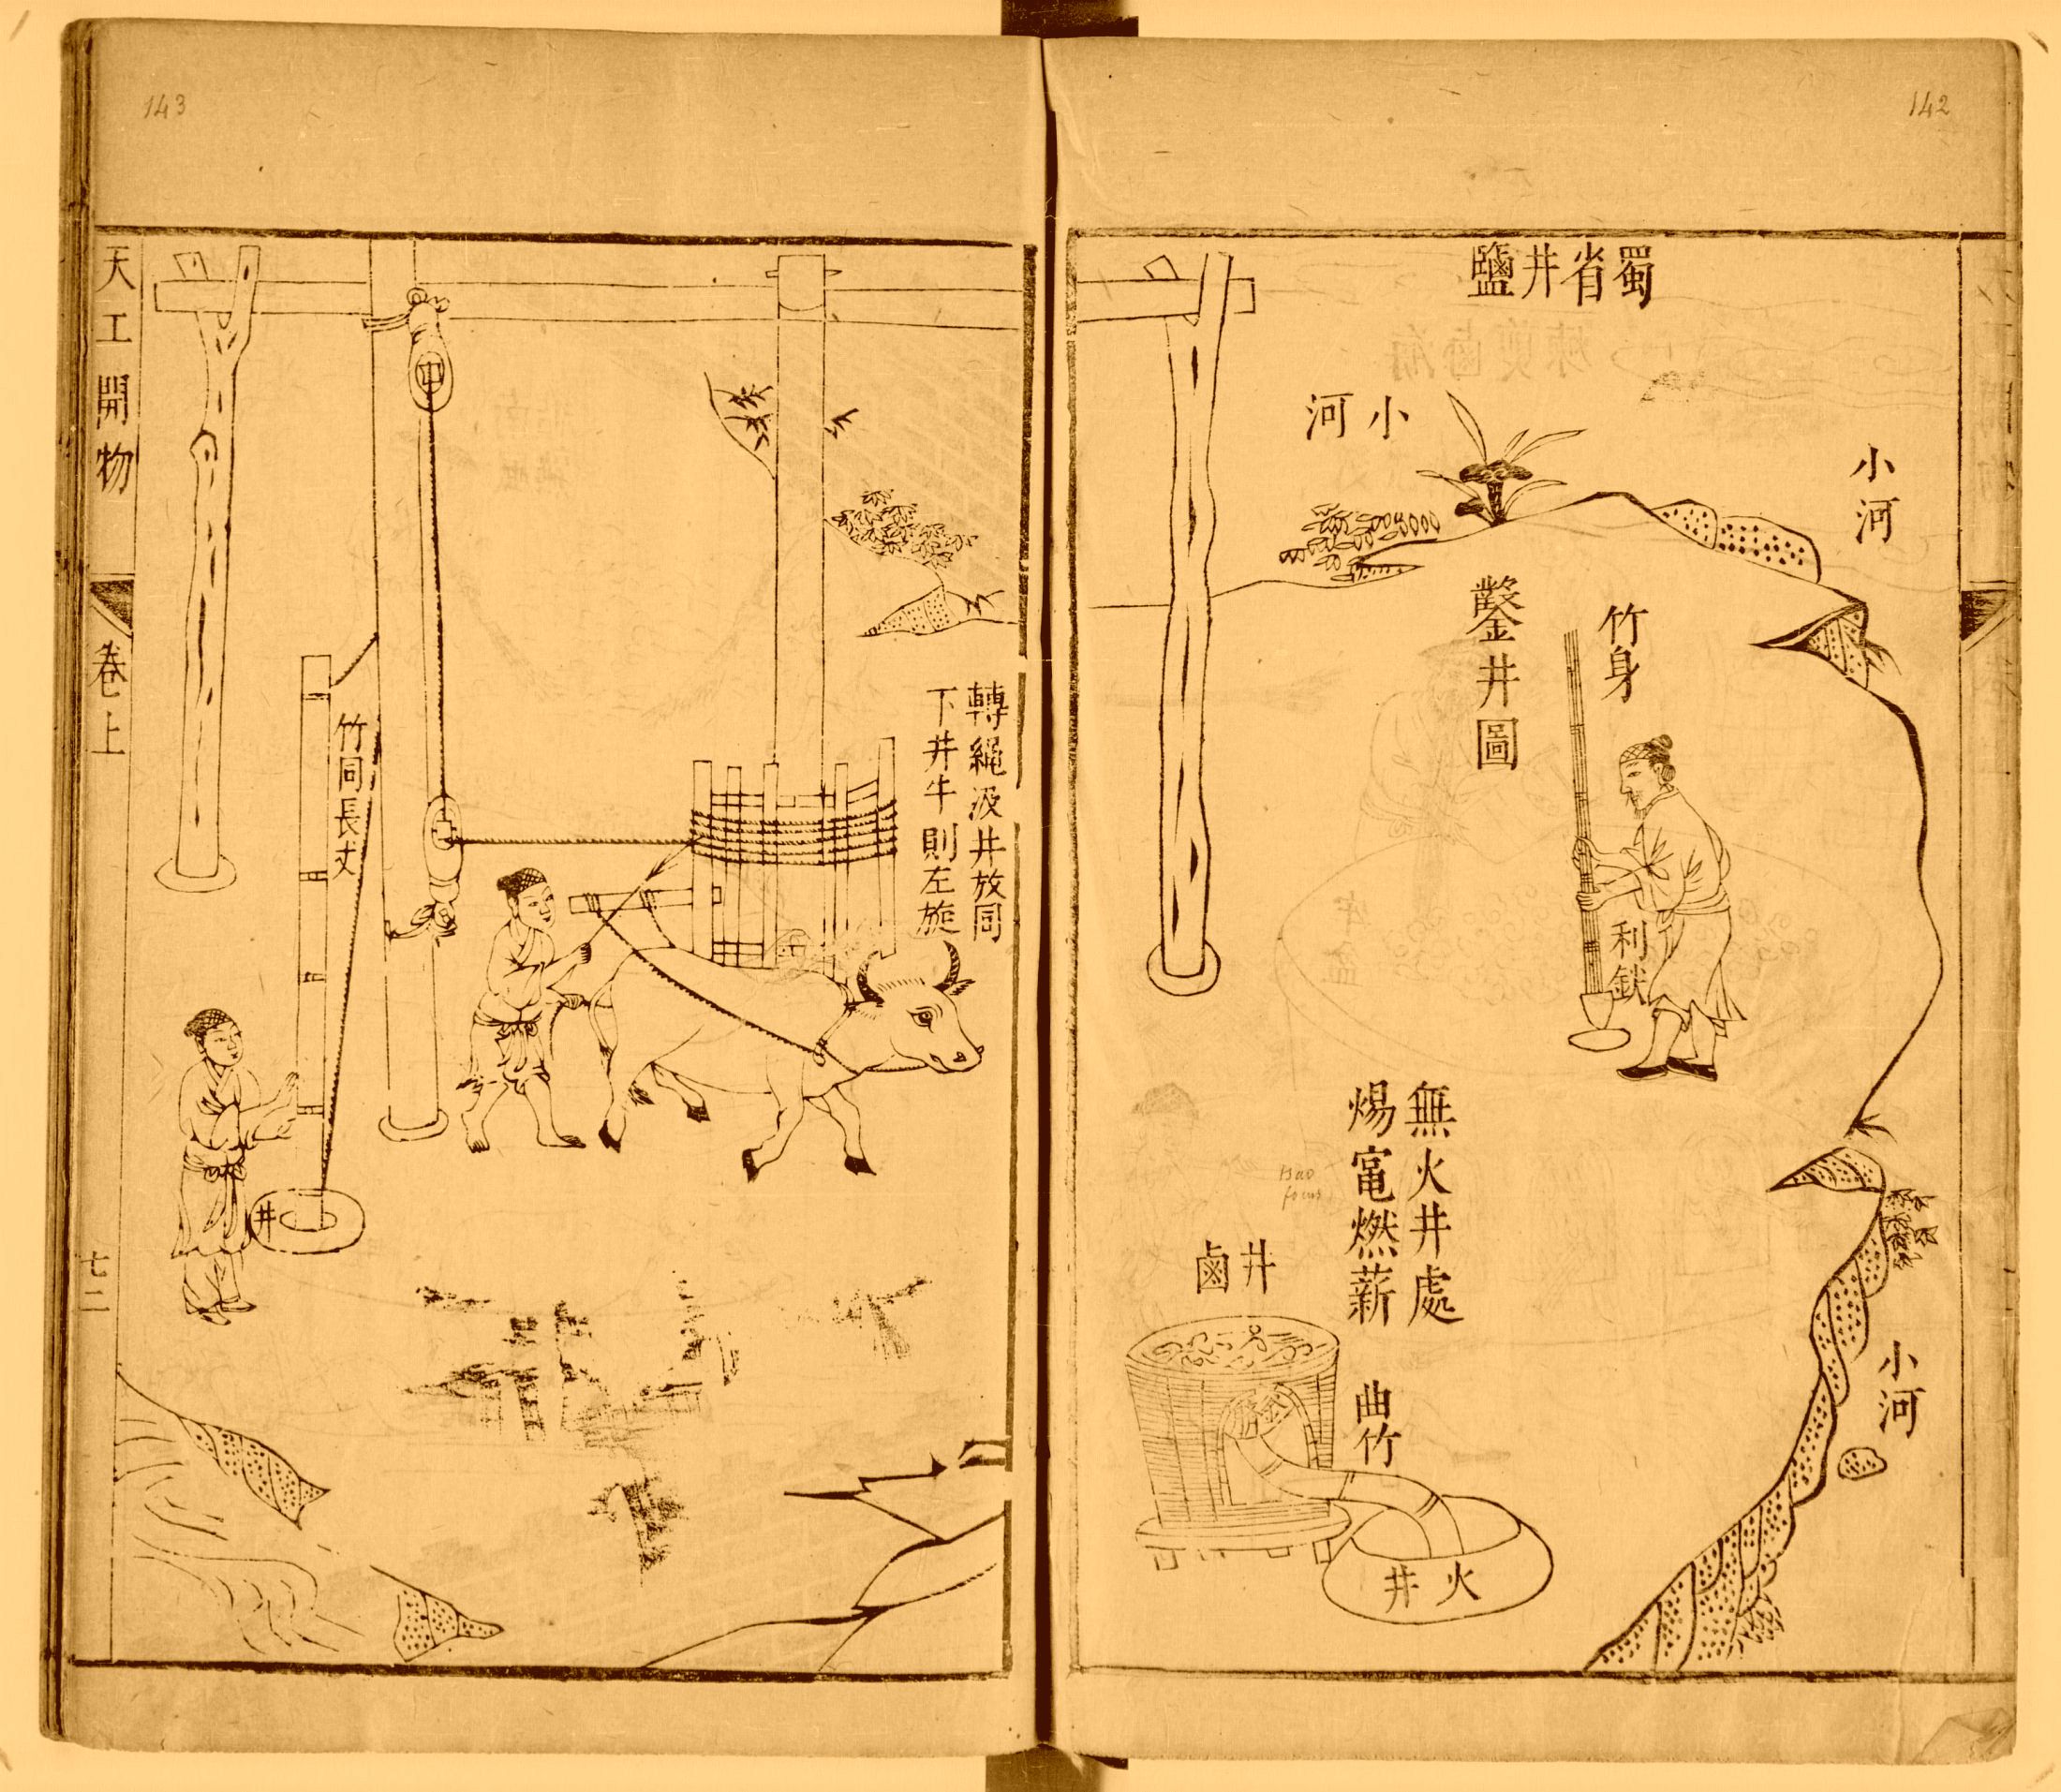 142
蜀省井鹽
小河
小河
竹身
鑿井圖
利鉄
無火井處
煬竈燃薪
井鹵
曲竹
小河
火井
143
轉繩汲井放同
下井牛則左旋
竹同長丈
井
天工開物
卷上
七二